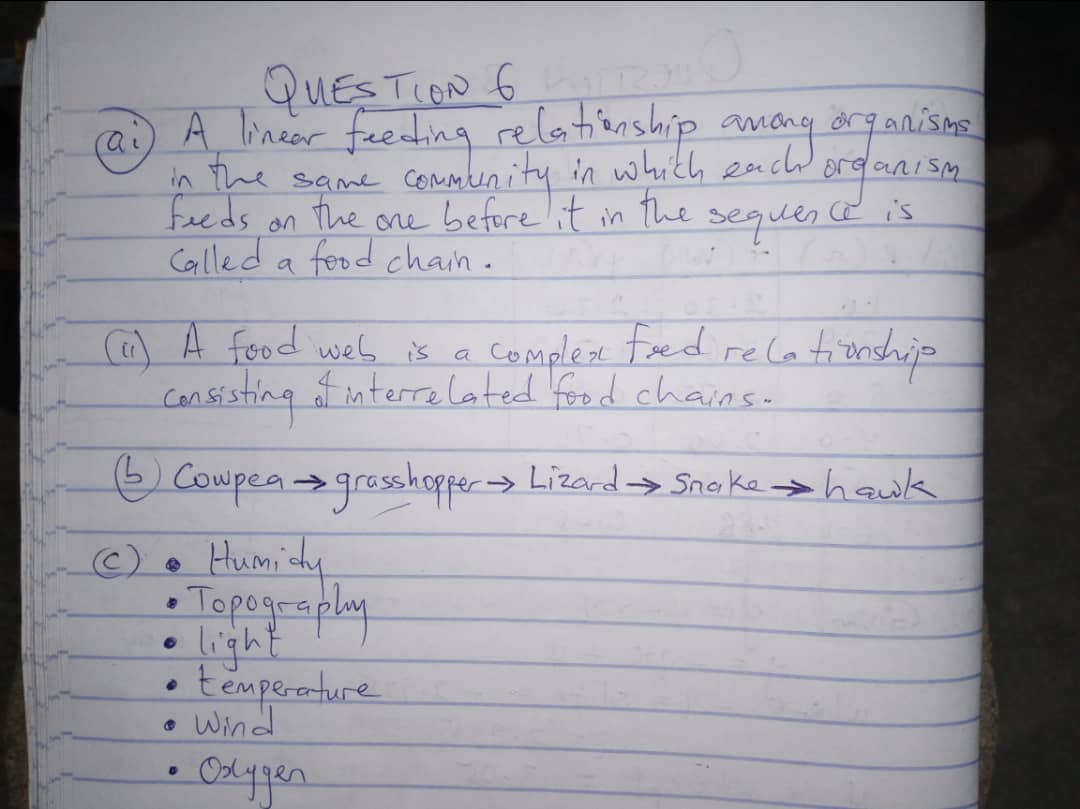 QUESTION 6
ai) A linear feeding relationship among organisms
in the same community in which each organism
feeds on the one before it in the sequence is
called a food chain.
(ii) A food web is a complex feed relationship
consisting of interrelated food chains.
(b) Cowpea → grasshopper → Lizard → Snake → hawk
(c) • Humidy
• Topography
• light
• temperature
• Wind
• Oxygen